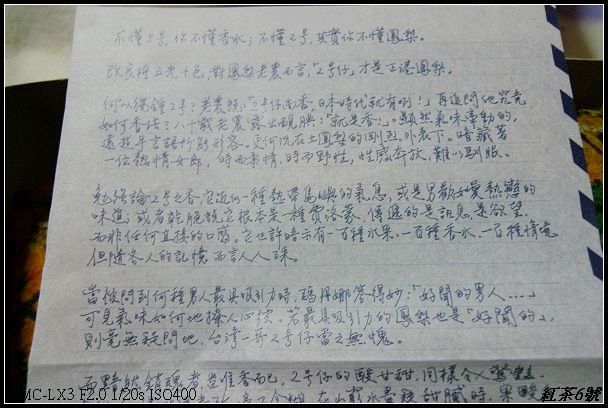 不懂5号,你不懂香水;不懂2号,其實你不懂鳳梨。
改良種五光十色,對鳳梨老農而言,「2号仔」才是正港鳳梨。
何以獨鍾2号?老農說:「2号仔尚香,日本時代就有咧!」再追問他究竟
如何香法?八十歲老農露出靦腆:「就是香!」。顯然氣味牽動的,
遠超乎言語所能形容。更何況在土鳳梨的剛烈外表下。暗藏著
一位熱情女郎,時而柔情,時而野性,性感奔放,難以馴服。
勉強論2号之香,它近似一種熱帶島嶼的氣息,或是男歡女愛熱戀的
味道,或者乾脆說它根本是一種費洛蒙,傳遞的是訊息,是欲望,
而非任何直接的口感。它也許暗示有一百種水果,一百種香水,一百種情境
但隨各人的記憶而言人人殊。
當被問到何種男人最具吸引力時,瑪丹娜答得妙:「好聞的男人……」
可見氣味如何地撩人心弦。若最具吸引力的鳳梨也是「好聞的」,
則毫無疑問地,台灣一哥2号仔當之無愧。
而黯然銷魂者豈僅香而已,2号仔的酸甘甜,同樣令人驚艷
MC-LX3 F2.0 1/20s ISO400
紅茶6號